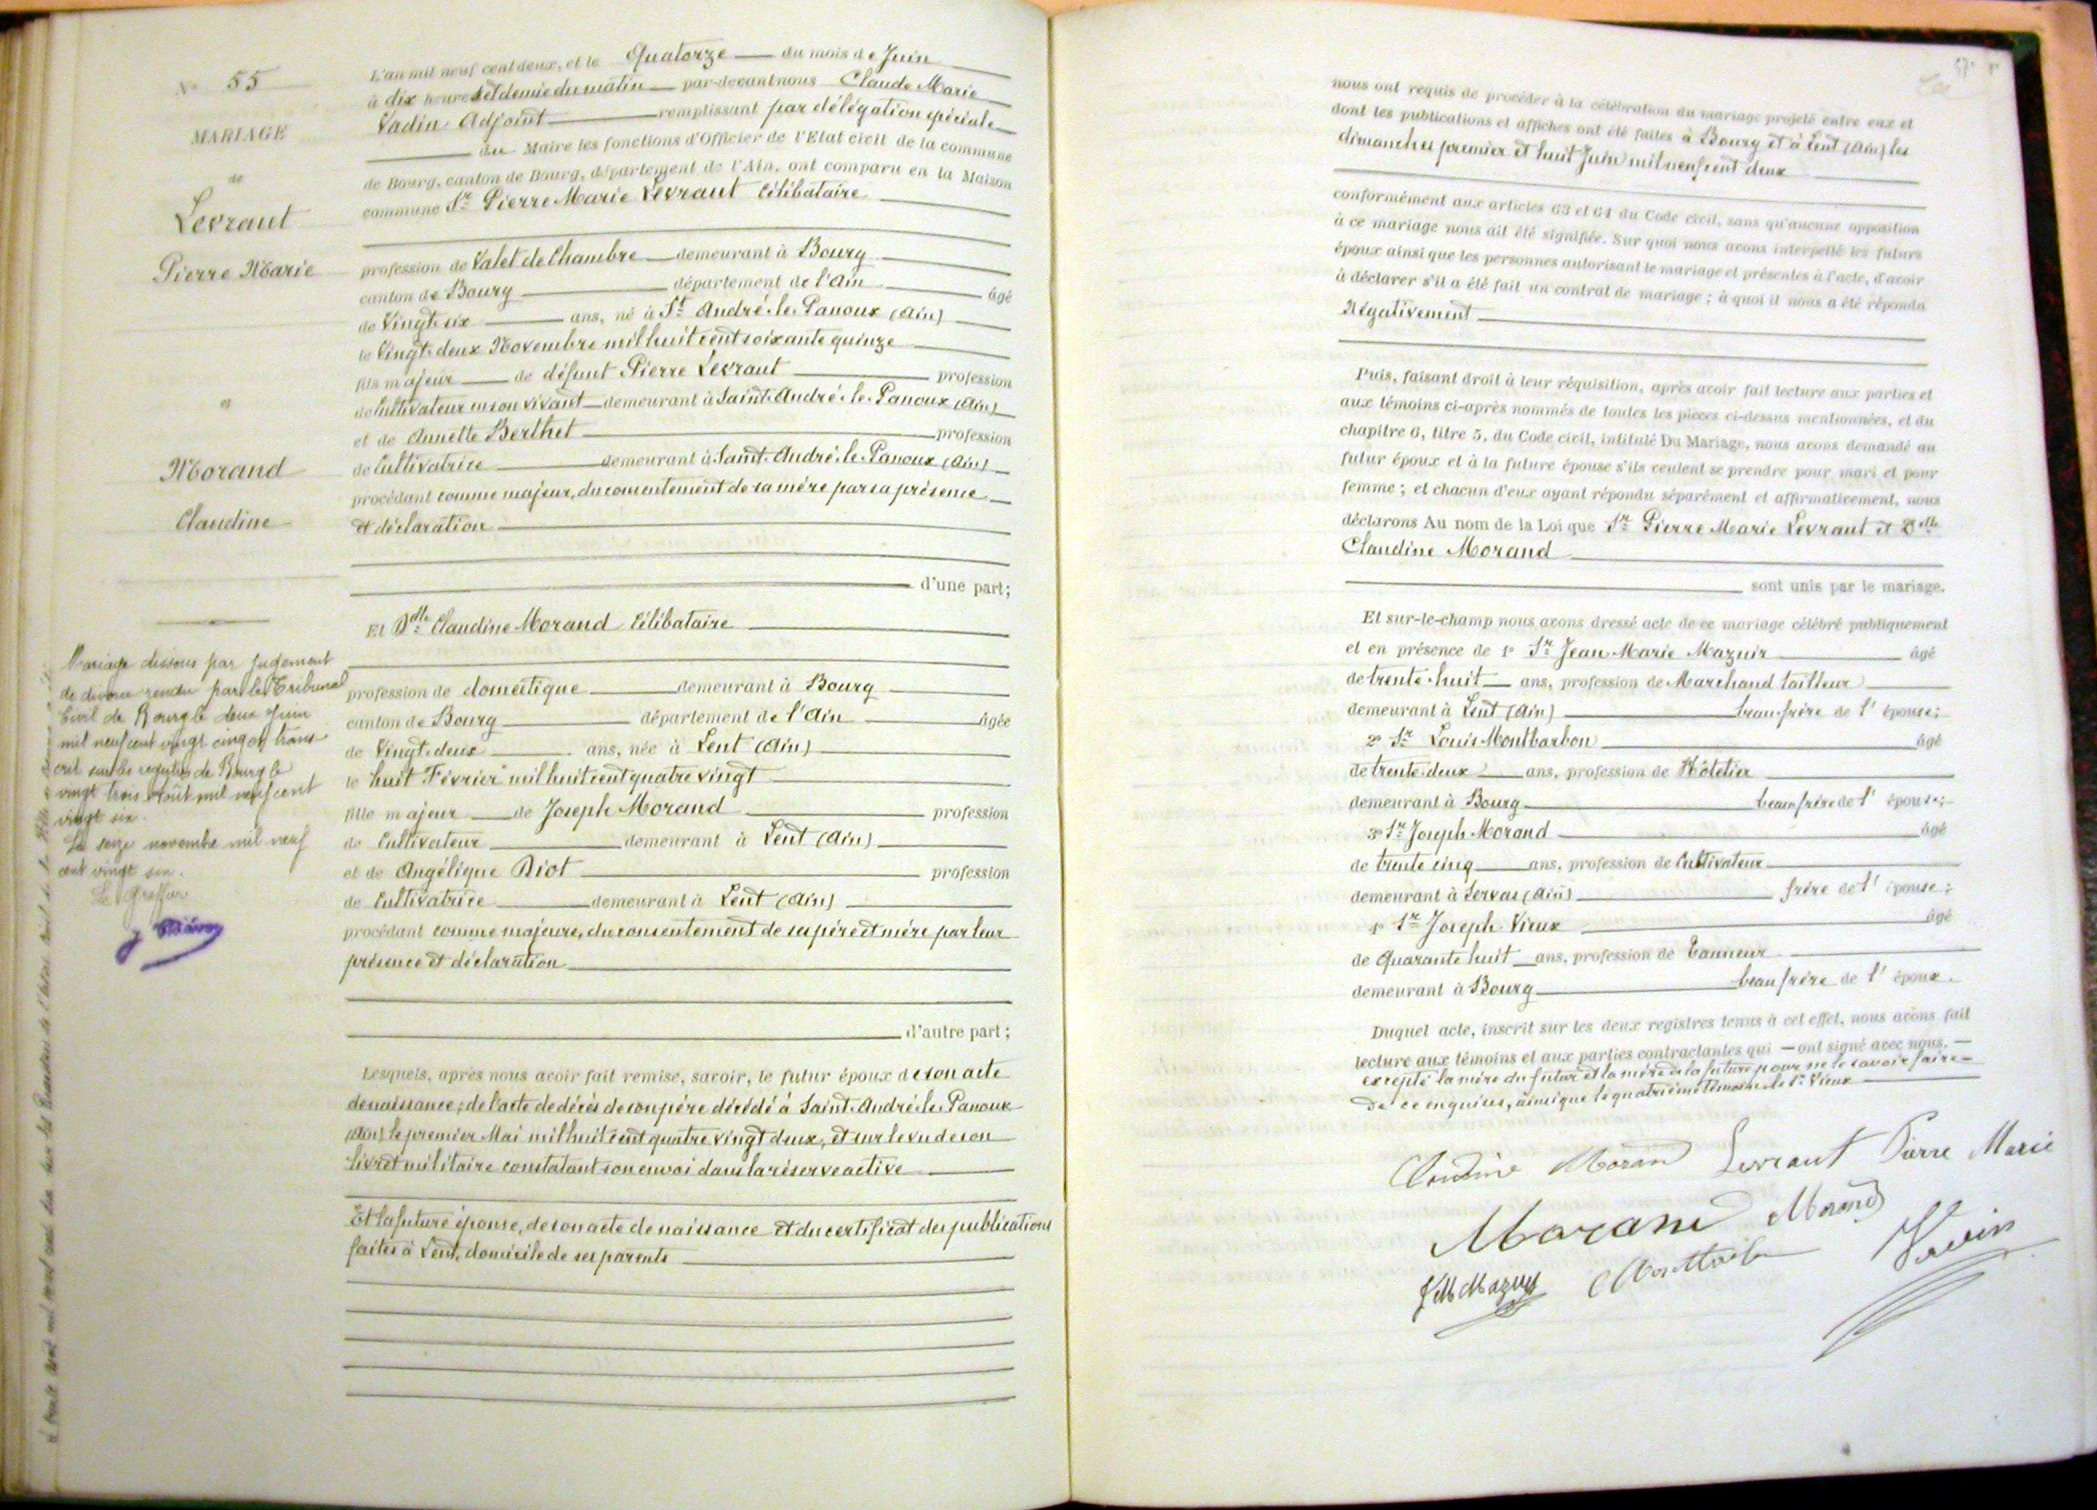 N° 55
MARIAGE
de
Levraut
Pierre Marie
et
Morand
Claudine
Mariage dissous par jugement
de divorce rendu par le Tribunal
Civil de Bourg le deux Juin
mil neuf cent vingt cinq et trans
crit sur les registres de Bourg le
vingt trois Août mil neuf cent
vingt six.
Le seize novembre mil neuf
cent vingt six.
Le Greffier
L'an mil neuf cent deux, et le Quatorze du mois de Juin
à dix heures et demie du matin par-devant nous Claude Marie
Vadin Adjoint remplissant par délégation spéciale
du Maire les fonctions d'Officier de l'Etat civil de la commune
de Bourg, canton de Bourg, département de l'Ain, ont comparu en la Maison
commune Sr Pierre Marie Levraut Célibataire
profession de Valet de Chambre demeurant à Bourg
canton de Bourg département de l'Ain âgé
de Vingt-six ans, né à St André-le-Panoux (Ain)
le Vingt-deux Novembre mil huit cent soixante quinze
fils majeur de défunt Pierre Levraut profession
de Cultivateur en son vivant demeurant à Saint-André-le-Panoux (Ain)
et de Annette Berthet profession
de Cultivatrice demeurant à Saint-André-le-Panoux (Ain)
procédant comme majeur, du consentement de sa mère par sa présence
et déclaration
d'une part;
Et Dlle Claudine Morand Célibataire
profession de domestique demeurant à Bourg
canton de Bourg département de l'Ain âgée
de Vingt-deux ans, née à Lent (Ain)
le huit Février mil huit cent quatre vingt
fille majeur de Joseph Morand profession
de Cultivateur demeurant à Lent (Ain)
et de Angélique Diot profession
de Cultivatrice demeurant à Lent (Ain)
procédant comme majeure, du consentement de ses père et mère par leur
présence et déclaration
d'autre part;
Lesquels, après nous avoir fait remise, savoir, le futur époux de son acte
de naissance; de l'acte de décès de son père décédé à Saint-André-le-Panoux
(Ain) le premier Mai mil huit cent quatre vingt deux, et sur le vu de son
livret militaire constatant son envoi dans la réserve active
Et la future épouse, de son acte de naissance et du certificat des publications
faites à Lent, domicile de ses parents
nous ont requis de procéder à la célébration du mariage projeté entre eux et
dont les publications et affiches ont été faites à Bourg et à Lent (Ain) les
dimanches premier et huit Juin mil neuf cent deux
conformément aux articles 63 et 64 du Code civil, sans qu'aucune opposition
à ce mariage nous ait été signifiée. Sur quoi nous avons interpellé les futurs
époux ainsi que les personnes autorisant le mariage et présentes à l'acte, d'avoir
à déclarer s'il a été fait un contrat de mariage; à quoi il nous a été répondu
Négativement
Puis, faisant droit à leur réquisition, après avoir fait lecture aux parties et
aux témoins ci-après nommés de toutes les pièces ci-dessus mentionnées, et du
chapitre 6, titre 5, du Code civil, intitulé Du Mariage, nous avons demandé au
futur époux et à la future épouse s'ils veulent se prendre pour mari et pour
femme; et chacun d'eux ayant répondu séparément et affirmativement, nous
déclarons Au nom de la Loi que Sr Pierre Marie Levraut et Dlle
Claudine Morand
sont unis par le mariage.
Et sur-le-champ nous avons dressé acte de ce mariage célébré publiquement
et en présence de 1° Sr Jean Marie Mazuir âgé
de trente-huit ans, profession de Marchand tailleur
demeurant à Lent (Ain) beau-frère de l'épouse;
2° Sr Louis Montbarbon âgé
de trente-deux ans, profession de Hôtelier
demeurant à Bourg beau frère de l'épouse;
3° Sr Joseph Morand âgé
de trente cinq ans, profession de Cultivateur
demeurant à Servas (Ain) frère de l'épouse;
4° Sr Joseph Vieux âgé
de Quarante huit ans, profession de Tanneur
demeurant à Bourg beau frère de l'époux.
Duquel acte, inscrit sur les deux registres tenus à cet effet, nous avons fait
lecture aux témoins et aux parties contractantes qui ont signé avec nous,
excepté la mère du futur et la mère de la future pour ne le savoir faire
de ce enquises, ainsi que le quatrième témoin le Sr Vieux
Claudine Morand Levraut Pierre Marie
Morand Morand
JM Mazuy Vadin